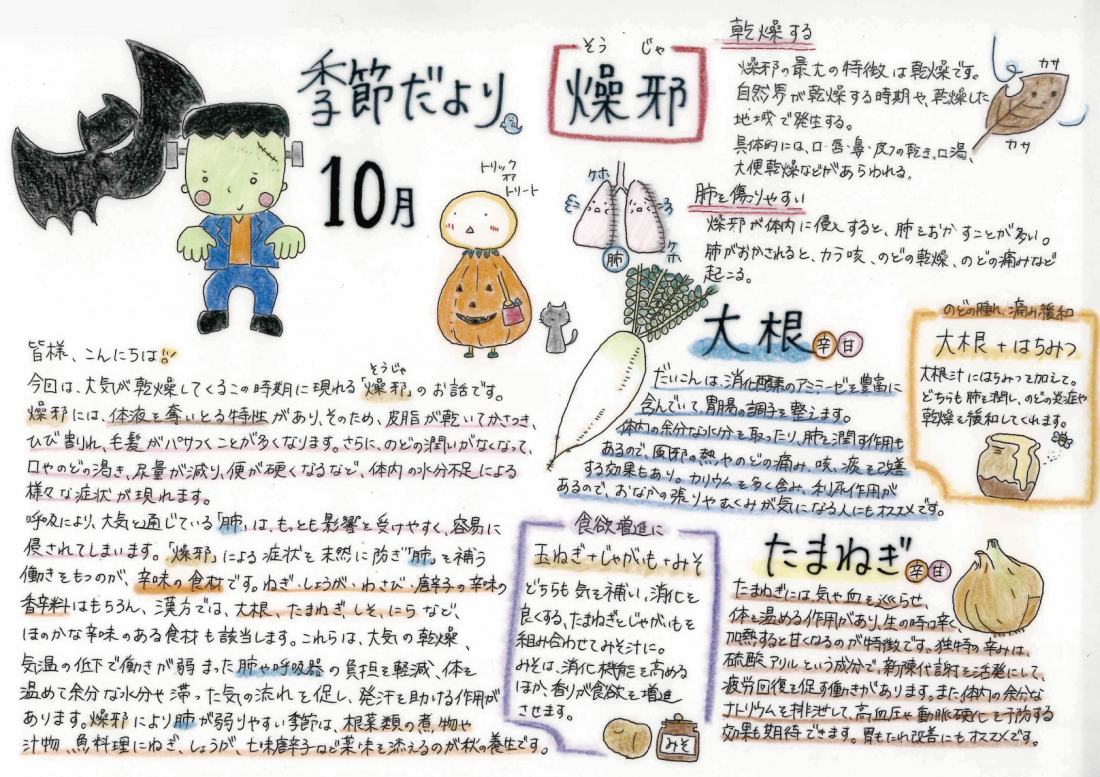 季節だより
10月
トリック
オア
トリート
皆様、こんにちは!!
そうじゃ
今回は、大気が乾燥してくるこの時期に現れる「燥邪」のお話です。
燥邪には、体液を奪いとる特性があり、そのため、皮脂が乾いてかさつき、
ひび割れ、毛髪がパサつくことが多くなります。さらに、のどの潤いがなくなって、
口やのどの渇き、尿量が減り、便が硬くなるなど、体内の水分不足による
様々な症状が現れます。
呼吸により、大気と通じている「肺」は、もっとも影響を受けやすく、容易に
侵されてしまいます。「燥邪」による症状を未然に防ぎ「肺」を補う
働きをもつのが、辛味の食材です。ねぎ・しょうが・わさび・唐辛子の辛味の
香辛料はもちろん、漢方では、大根、たまねぎ、しそ、にらなど、
ほのかな辛味のある食材も該当します。これらは、大気の乾燥、
気温の低下で働きが弱まった肺や呼吸器の負担を軽減、体を
温めて余分な水分や滞った気の流れを促し、発汗を助ける作用が
あります。燥邪により肺が弱りやすい季節は、根菜類の煮物や
汁物、魚料理にねぎ、しょうが、七味唐辛子など薬味を添えるのが秋の養生です。
そう じゃ
燥邪
乾燥する
燥邪の最大の特徴は乾燥です。
自然界が乾燥する時期や、乾燥した
地域で発生する。
具体的には、口・唇・鼻・皮フの乾き、口渇、
大便乾燥などがあらわれる。
カサ
カサ
肺を傷りやすい
燥邪が体内に侵入すると、肺をおかすことが多い。
肺がおかされると、カラ咳、のどの乾燥、のどの痛みなど
起こる。
ケホ
ケホ
肺
大根 辛 甘
だいこんは、消化酵素のアミラーゼを豊富に
含んでいて、胃腸の調子を整えます。
体内の余分な水分を取ったり、肺を潤す作用も
あるので、風邪の熱やのどの痛み、咳、痰を改善
する効果もあり。カリウムを多く含み、利尿作用が
あるので、おなかの張りやむくみが気になる人にもオススメです。
のどの腫れ、痛み緩和
大木根+はちみつ
大根汁にはちみつを加えて。
どちらも肺を潤し、のどの炎症や
乾燥を緩和してくれます。
食欲増進に
玉ねぎ+じゃがいも+みそ
どちらも気を補い、消化を
良くする、たまねぎとじゃがいもを
組み合わせてみそ汁に。
みそは、消化機能を高める
ほか、香りが食欲を増進
させます。
みそ
たまねぎ 辛 甘
たまねぎには気や血を巡らせ、
体を温める作用があり、生の時は辛く、
加熱すると甘くなるのが特徴です。独特の辛みは、
硫酸アリルという成分で、新陳代謝を活発にして、
疲労回復を促す働きがあります。また体内の余分な
ナトリウムを排泄して、高血圧や動脈硬化を予防する
効果も期待できます。胃もたれ改善にもオススメです。